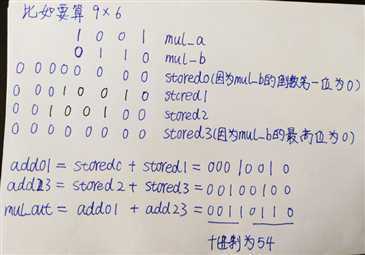 比如要算 9×6
1 0 0 1 mul_a
0 1 1 0 mul_b
0 0 0 0 0 0 0 0 stored0(因为mul_b的倒数第一位为0)
0 0 0 1 0 0 1 0 stored1
0 0 1 0 0 1 0 0 stored2
0 0 0 0 0 0 0 0 stored3(因为mul_b的最高位为0)
add01 = stored0 + stored1 = 00010010
add23 = stored2 + stored3 = 00100100
mul_out = add01 + add23 = 00110110
十进制为54